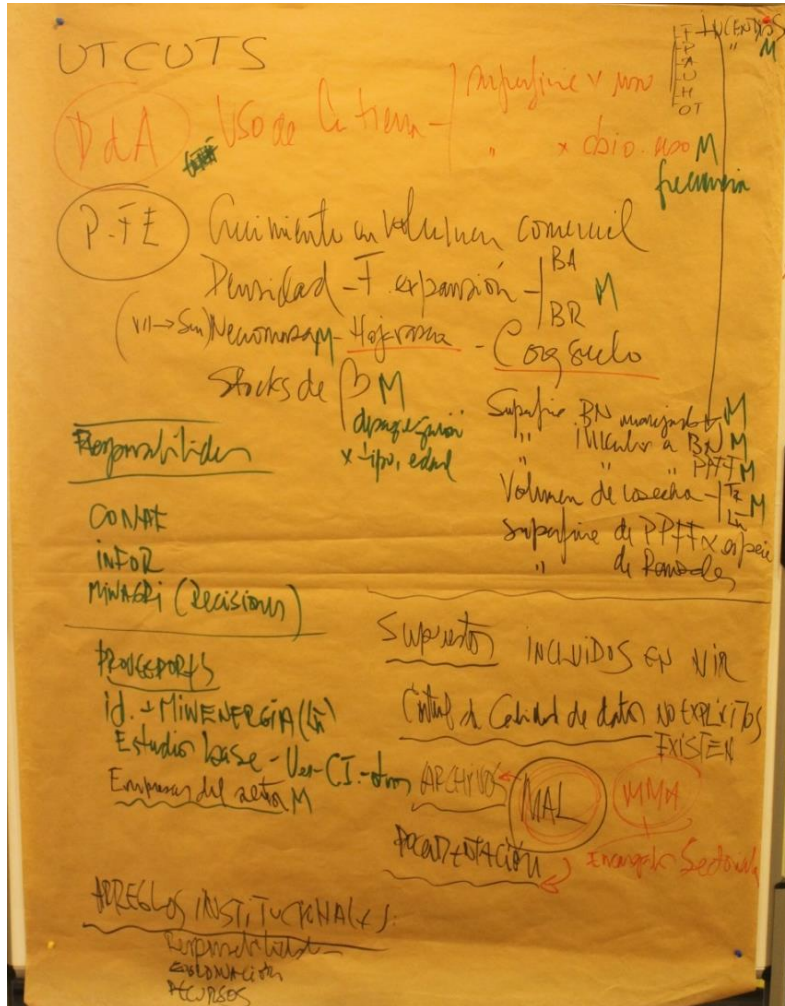 UTCUTS
INCENDIOS
" M
F
P
A
U
H
OT
DdA Uso de la tierra superficie x uso
" x cbio. uso M
frecuencia
P-FE Crecimiento en volumen comercial
Densidad - F. expansión BA M
BR
Necromasa M - Hojarasca - Corg suelo
Stocks de B M
x tipo, edad
Superficie BN manejado M
" " a BN M
" " PPFF M
Volumen de cosecha Tr M
Lñ
Superficie de PPFF x especie
" de Renovales
Responsabilidades
CONAF
INFOR
MINAGRI (Decisions)
PROVEEDORES
id. + MINENERGÍA (Lñ)
Estudios base - Univ - CI - otros
Empresas del sector M
Supuestos INCLUIDOS EN NIR
Control de Calidad de datos NO EXPLÍCITOS
EXISTEN
ARCHIVOS MAL MMA
DOCUMENTACIÓN Encargado Sectorial
ARREGLOS INSTITUCIONALES:
Responsabilidades
COORDINACIÓN
RECURSOS